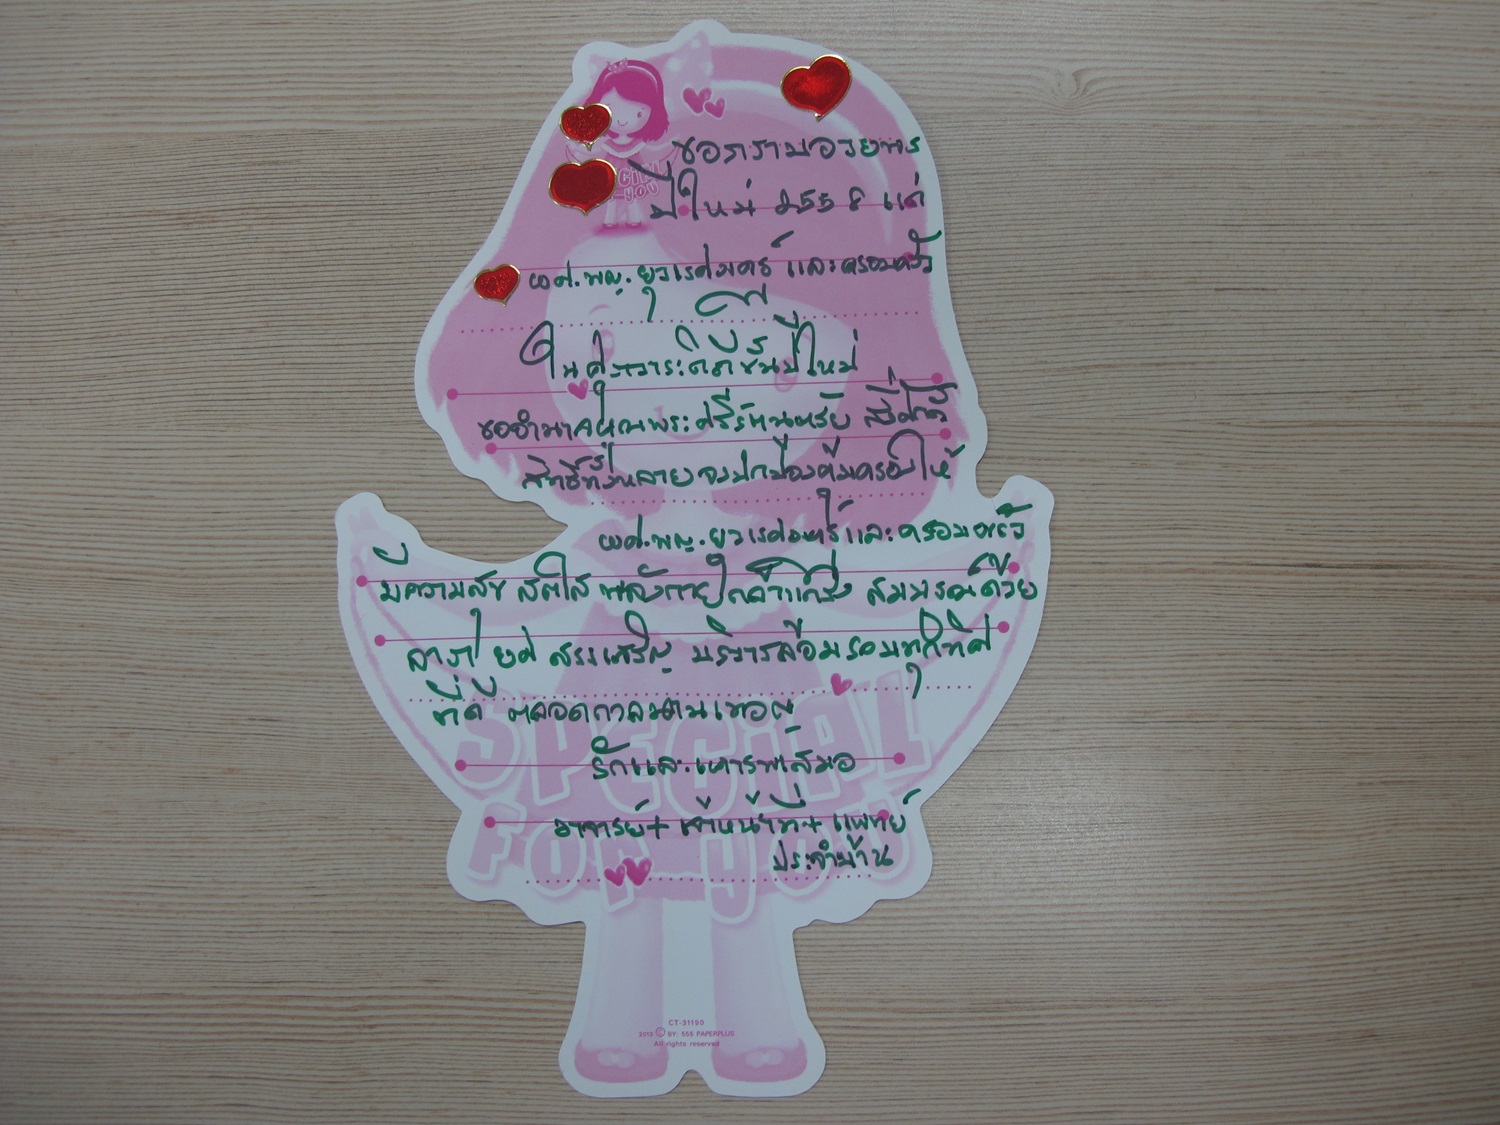 ขอกราบอวยพร
ปีใหม่ 2558 แด่
ผศ.พญ.ยุวเรศมคฐ์ และครอบครัว
ในศุภวาระดิถีขึ้นปีใหม่
ขออำนาจคุณพระศรีรัตนตรัย สิ่งศักดิ์
สิทธิ์ทั้งหลายจงปกป้องคุ้มครองให้
ผศ.พญ.ยุวเรศมคฐ์และครอบครัว
มีความสุข สดใส พลังกายใจกล้าแกร่ง สมบูรณ์ด้วย
ลาภ ยศ สรรเสริญ บริวารล้อมรอบทุกทิศ
ที่ดี ตลอดกาลนานเทอญ
รักและเคารพเสมอ
อาจารย์+เจ้าหน้าที่+แพทย์
ประจำบ้าน
SPECIAL
FOR YOU
CT-31190
2013 © BY: 555 PAPERPLUS
All rights reserved